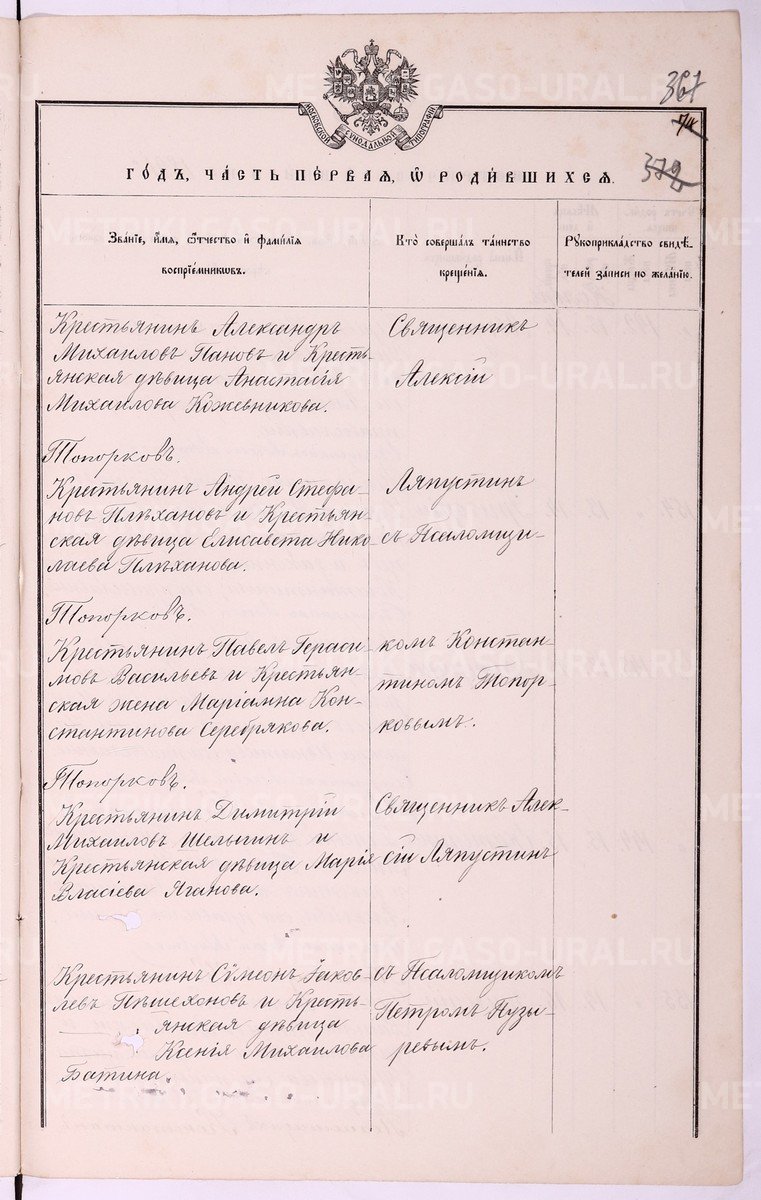 367
372
МОСКОВСКОЙ СУНОДАЛЬНОЙ ТИПОГРАФІИ
ГО́ДЪ, ЧА́СТЬ ПЕ́РВАЯ, Ѽ РОДИ́ВШИХСЯ.
Зва́нїе, и҆́мя, ѻ҆́тчество и҆ фамѝлїя
воспрїе́мникѡвъ.
Кто̀ соверша́лъ та́инство
креще́нїя.
Рꙋкоприкла́дство свидѣ́-
телей за́писи по жела́нїю.
Крестьянинъ Александръ
Михаиловъ Пановъ и Кресть-
янская дѣвица Анастасія
Михаилова Кожевникова.
Священникъ
Алексій
Топорковъ.
Крестьянинъ Андрей Стефа-
новъ Плѣхановъ и Крестьян-
ская дѣвица Елисавета Нико-
лаева Плѣханова.
Ляпустинъ
съ Псаломщи-
Топорковъ.
Крестьянинъ Павелъ Гераси-
мовъ Васильевъ и Крестьян-
ская жена Маріамна Кон-
стантинова Серебрякова.
комъ Констан-
тиномъ Топор-
ковымъ.
Топорковъ.
Крестьянинъ Димитрій
Михаиловъ Шелыгинъ и
Крестьянская дѣвица Марія
Власіева Яганова.
Священникъ Алек-
сій Ляпустинъ
Крестьянинъ Сѵмеонъ Іаков-
левъ Пѣшехоновъ и Кресть-
янская дѣвица
Ксенія Михаилова
Батина.
съ Псаломщикомъ
Петромъ Пузы-
ревымъ.
METRIKI.GASO-URAL.RU